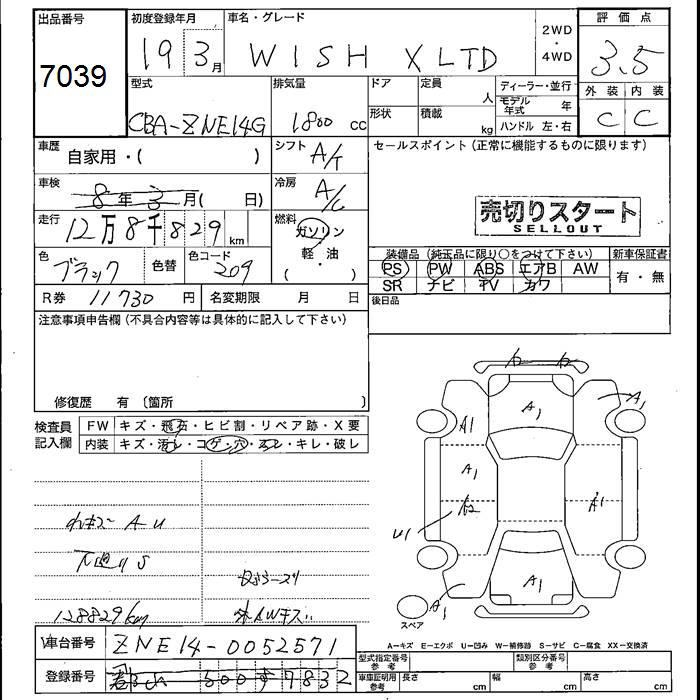 出品番号 7039
初度登録年月 19 3月
車名・グレード WISH X LTD
2WD・4WD
評価点 3.5
外装 C 内装 C
型式 CBA-ZNE14G
排気量 1800 cc
ドア 形状
定員 人
積載 kg
ディーラー・並行
モデル年式 年
ハンドル 左・右
車歴 自家用・( )
シフト A/T
セールスポイント (正常に機能するものに限ります)
車検 8年3月( 日)
冷房 A/C
走行 12万8千829km
燃料 ガソリン 軽・油 ( )
売切りスタート
SELLOUT
色 ブラック 色替 色コード 209
装備品 (純正品に限り○をつけて下さい) 新車保証書
PS PW ABS エアB AW 有・無
SR ナビ TV カワ
R券 11730円 名変期限 月 日
後日品
注意事項申告欄 (不具合内容等は具体的に記入して下さい)
修復歴 有 (箇所 )
検査員記入欄
FW キズ・飛石・ヒビ割・リペア跡・X要
内装 キズ・汚レ・コゲ・穴・スレ・キレ・破レ
A U
S
128829km
外AWキズ
A1
A1
A1
A1
A2
A1
U1
A1
A1
スペア
A-キズ E-エクボ U-凹み W-補修跡 S-サビ C-腐食 XX-交換済
車台番号 ZNE14-0052571
登録番号 500 す 7832
型式指定番号 参考 類別区分番号 参考
車庫証明用 参考 長さ cm 幅 cm 高さ cm